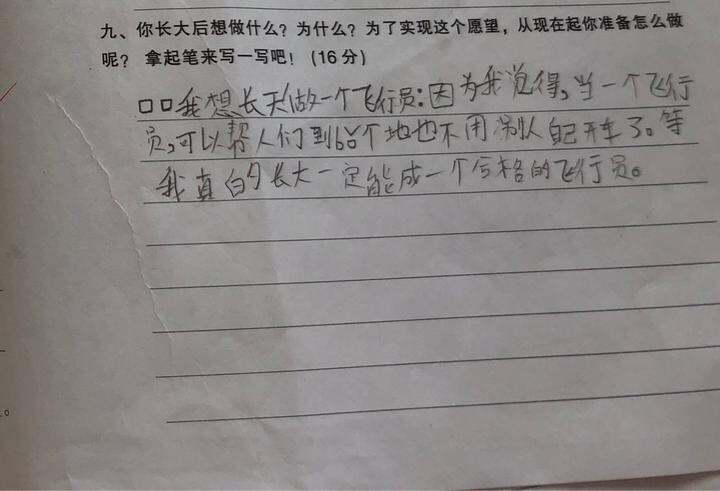 九、你长大后想做什么？为什么？为了实现这个愿望，从现在起你准备怎么做
呢？拿起笔来写一写吧！（16分）
口口我想长大做一个飞行员：因为我觉得，当一个飞行
员，可以帮人们到各个地也不用别人自己开车了。等
我真的长大一定能成一个合格的飞行员。